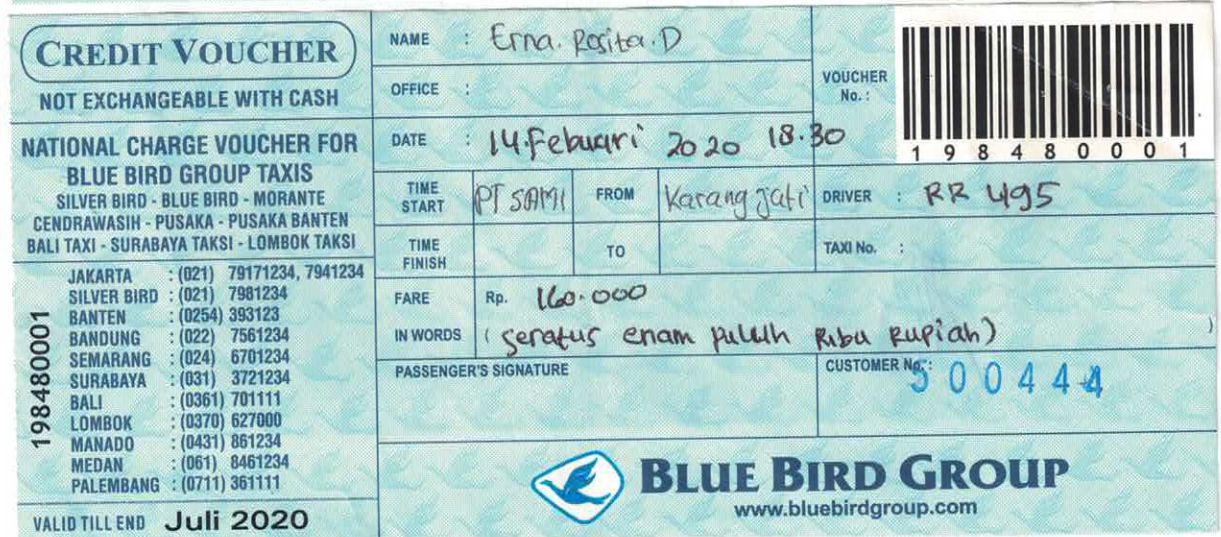 CREDIT VOUCHER
NOT EXCHANGEABLE WITH CASH
NATIONAL CHARGE VOUCHER FOR
BLUE BIRD GROUP TAXIS
SILVER BIRD - BLUE BIRD - MORANTE
CENDRAWASIH - PUSAKA - PUSAKA BANTEN
BALI TAXI - SURABAYA TAKSI - LOMBOK TAKSI
198480001
JAKARTA : (021) 79171234, 7941234
SILVER BIRD : (021) 7981234
BANTEN : (0254) 393123
BANDUNG : (022) 7561234
SEMARANG : (024) 6701234
SURABAYA : (031) 3721234
BALI : (0361) 701111
LOMBOK : (0370) 627000
MANADO : (0431) 861234
MEDAN : (061) 8461234
PALEMBANG : (0711) 361111
VALID TILL END Juli 2020
NAME : Erna. Rosita. D
OFFICE :
DATE : 14. Febuari 2020 18.30
VOUCHER No. :
1 9 8 4 8 0 0 0 1
TIME START PT SAMI FROM Karang Jati DRIVER : RR 495
TIME FINISH TO TAXI No. :
FARE Rp. 160.000
IN WORDS ( seratus enam puluh Ribu Rupiah) )
PASSENGER'S SIGNATURE
CUSTOMER No. : 500444
BLUE BIRD GROUP
www.bluebirdgroup.com